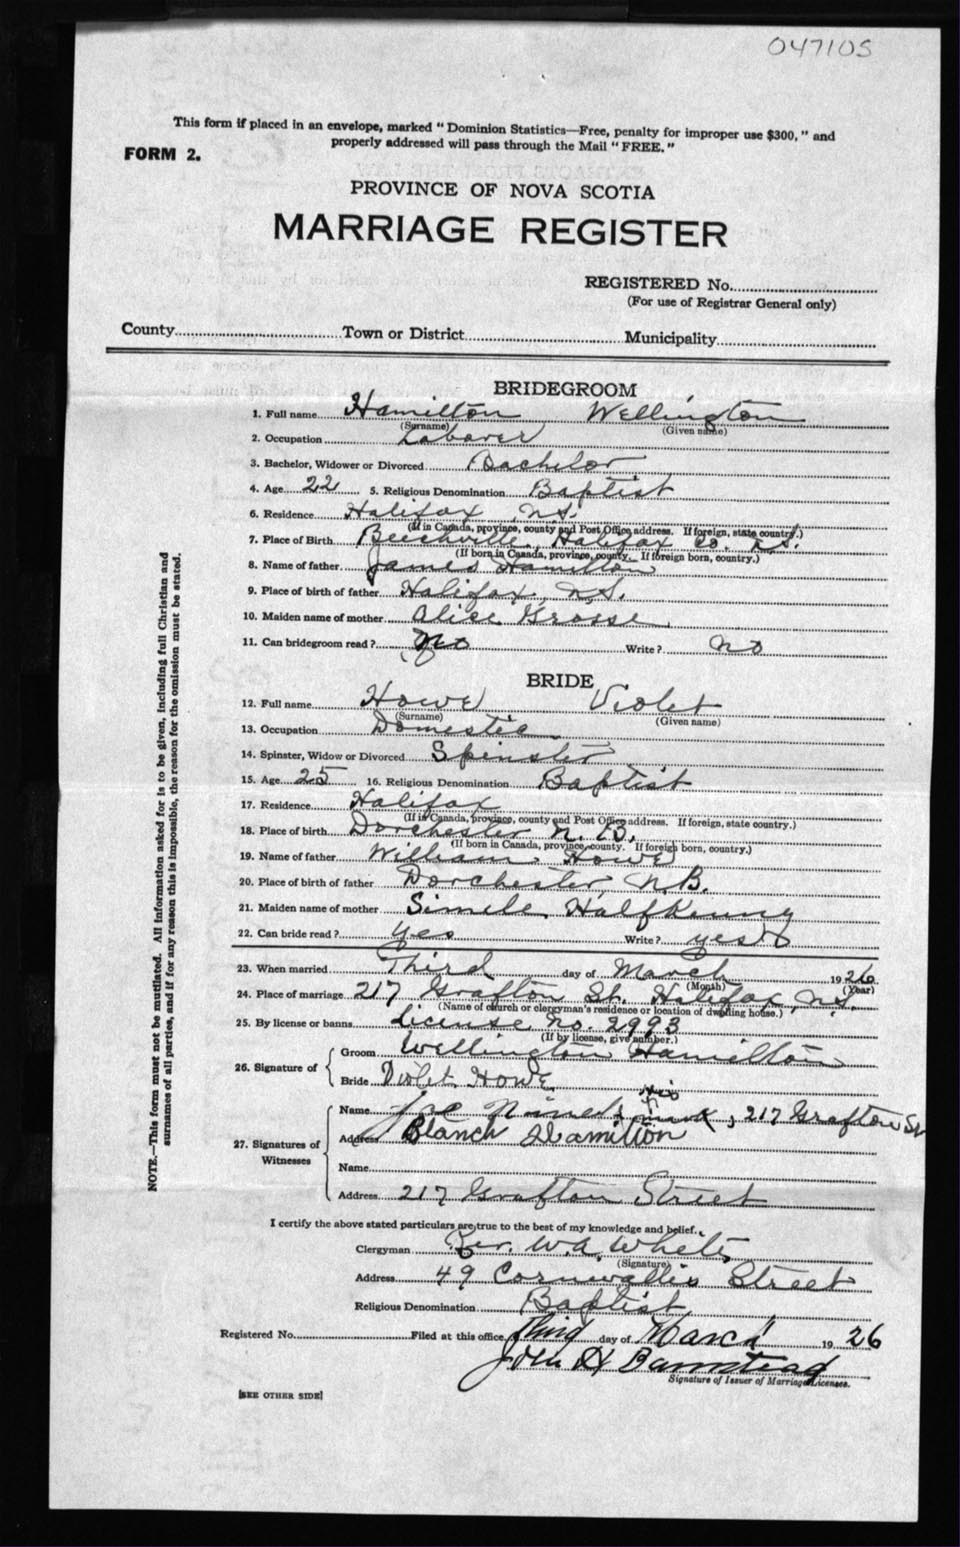 047105
This form if placed in an envelope, marked “ Dominion Statistics—Free, penalty for improper use $300, ” and
properly addressed will pass through the Mail “ FREE. ”
FORM 2.
PROVINCE OF NOVA SCOTIA
MARRIAGE REGISTER
REGISTERED No.
(For use of Registrar General only)
County Town or District Municipality
BRIDEGROOM
1. Full name Hamilton Wellington
(Surname) (Given name)
2. Occupation Laborer
3. Bachelor, Widower or Divorced Bachelor
4. Age 22 5. Religious Denomination Baptist
6. Residence Halifax, N.S.
(If in Canada, province, county and Post Office address. If foreign, state country.)
7. Place of Birth Beechville, Halifax Co. N.S.
(If born in Canada, province, county. If foreign born, country.)
8. Name of father James Hamilton
9. Place of birth of father Halifax, N.S.
10. Maiden name of mother Alice Grosse
11. Can bridegroom read ? No Write ? no
BRIDE
12. Full name Howe Violet
(Surname) (Given name)
13. Occupation Domestic
14. Spinster, Widow or Divorced Spinster
15. Age 25 16. Religious Denomination Baptist
17. Residence Halifax
(If in Canada, province, county and Post Office address. If foreign, state country.)
18. Place of birth Dorchester N. B.
(If born in Canada, province, county. If foreign born, country.)
19. Name of father William Howe
20. Place of birth of father Dorchester, N.B.
21. Maiden name of mother Halfkenny
22. Can bride read ? yes Write ? yes
23. When married Third day of March 1926
(Month) (Year)
24. Place of marriage 217 Grafton St. Halifax, N.S.
(Name of church or clergyman's residence or location of dwelling house.)
25. By license or banns License No. 2993
(If by license, give number.)
26. Signature of
Groom Wellington Hamilton
Bride Violet Howe
his
27. Signatures of Witnesses
Name Joe mark, 217 Grafton St
Address Blanch Hamilton
Name
Address 217 Grafton Street
I certify the above stated particulars are true to the best of my knowledge and belief.
Clergyman Rev. W.A. White
(Signature)
Address 49 Cornwallis Street
Religious Denomination Baptist
Registered No. Filed at this office Third day of March 1926
John H Barnstead
Signature of Issuer of Marriage Licenses.
[SEE OTHER SIDE]
NOTE.—This form must not be mutilated. All information asked for is to be given, including full Christian and
surnames of all parties, and if for any reason this is impossible, the reason for the omission must be stated.